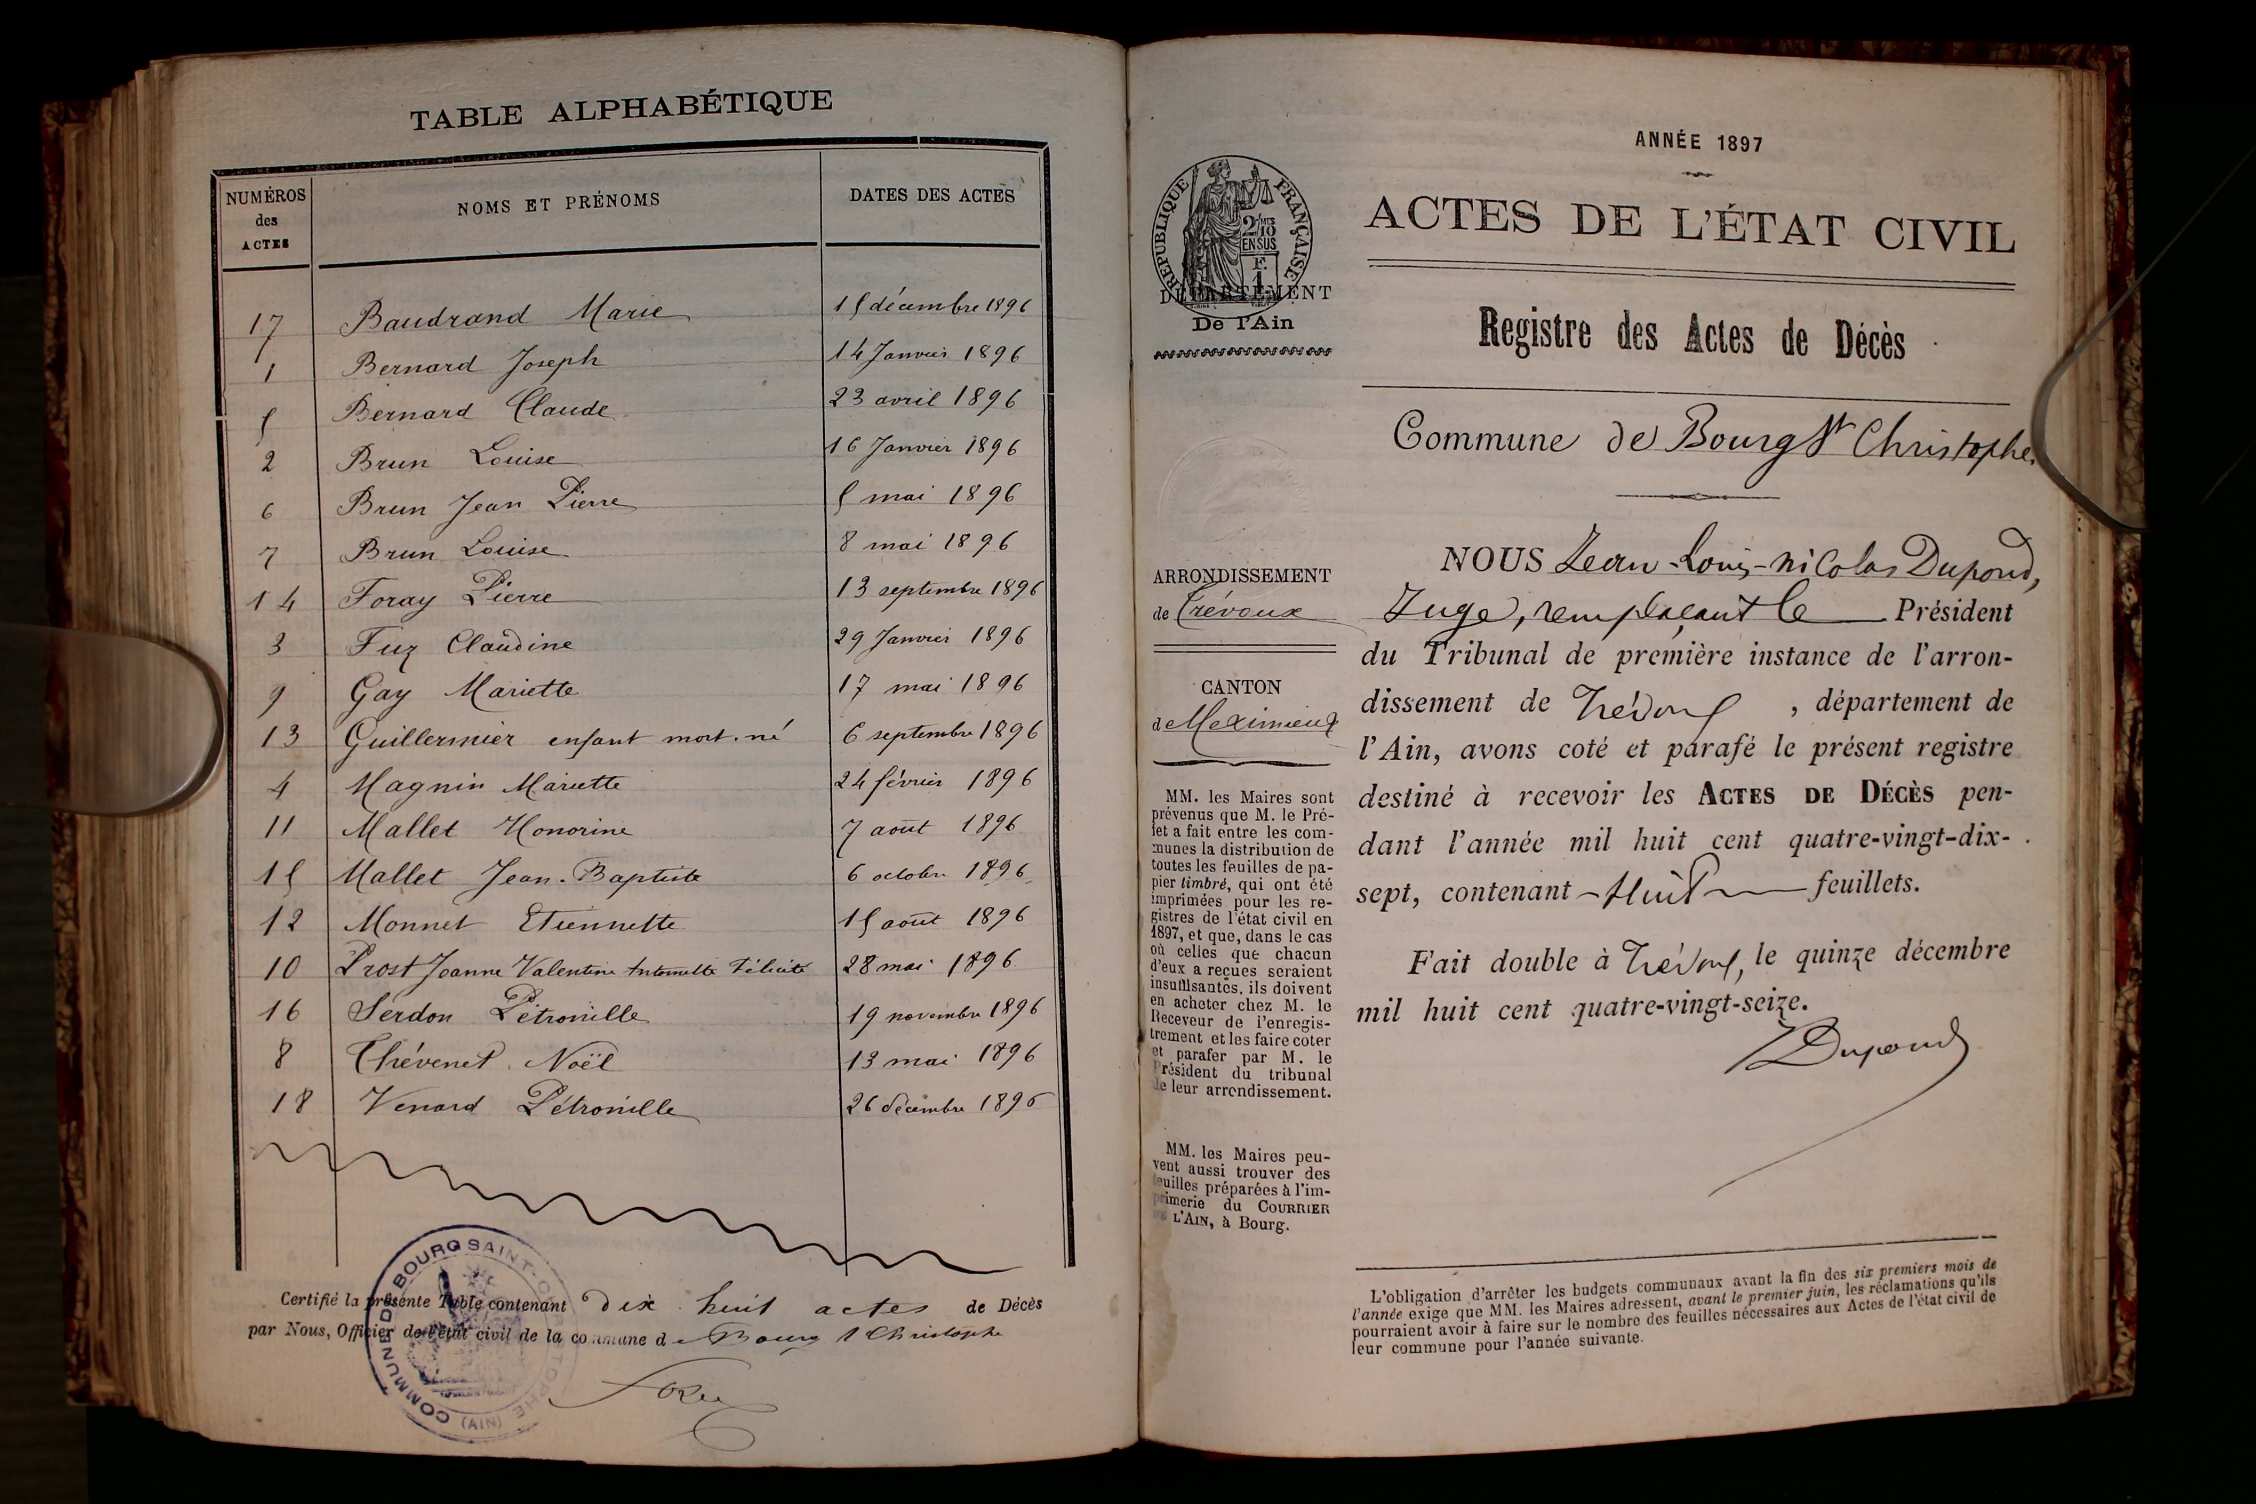 TABLE ALPHABÉTIQUE
NUMÉROS des ACTES NOMS ET PRÉNOMS DATES DES ACTES
17 Baudrand Marie 15 décembre 1896
1 Bernard Joseph 14 Janvier 1896
5 Bernard Claude 23 avril 1896
2 Brun Louise 16 Janvier 1896
6 Brun Jean Pierre 5 mai 1896
7 Brun Louise 8 mai 1896
14 Foray Pierre 13 septembre 1896
3 Fuz Claudine 29 Janvier 1896
9 Gay Mariette 17 mai 1896
13 Guillermier enfant mort-né 6 septembre 1896
4 Magnin Mariette 24 février 1896
11 Mallet Honorine 7 août 1896
15 Mallet Jean-Baptiste 6 octobre 1896
12 Monnet Etiennette 15 août 1896
10 Prost Joanne Valentine Antoinette Félicité 28 mai 1896
16 Serdon Pétronille 19 novembre 1896
8 Thévenet Noël 13 mai 1896
18 Venard Pétronille 26 décembre 1896
Certifié la présente Table contenant dix huit actes de Décès
par Nous, Officier de l'état civil de la commune de Bourg St Christophe
COMMUNE DE BOURG SAINT-CHRISTOPHE (AIN)
ANNÉE 1897
ACTES DE L'ÉTAT CIVIL
Registre des Actes de Décès
Commune de Bourg St Christophe
RÉPUBLIQUE FRANÇAISE
2/10 EN SUS
F. 1
DÉPARTEMENT
De l'Ain
ARRONDISSEMENT
de Trévoux
CANTON
de Meximieux
MM. les Maires sont
prévenus que M. le Pré-
fet a fait entre les com-
munes la distribution de
toutes les feuilles de pa-
pier timbré, qui ont été
imprimées pour les re-
gistres de l'état civil en
1897, et que, dans le cas
où celles que chacun
d'eux a reçues seraient
insuffisantes, ils doivent
en acheter chez M. le
Receveur de l'enregis-
trement et les faire coter
et parafer par M. le
Président du tribunal
de leur arrondissement.
MM. les Maires peu-
vent aussi trouver des
feuilles préparées à l'im-
primerie du COURRIER
DE L'AIN, à Bourg.
NOUS Jean-Louis-Nicolas Dupond,
Juge, remplaçant le Président
du Tribunal de première instance de l'arron-
dissement de Trévoux, département de
l'Ain, avons coté et parafé le présent registre
destiné à recevoir les ACTES DE DÉCÈS pen-
dant l'année mil huit cent quatre-vingt-dix-
sept, contenant huit feuillets.
Fait double à Trévoux, le quinze décembre
mil huit cent quatre-vingt-seize.
Dupond
L'obligation d'arrêter les budgets communaux avant la fin des six premiers mois de
l'année exige que MM. les Maires adressent, avant le premier juin, les réclamations qu'ils
pourraient avoir à faire sur le nombre des feuilles nécessaires aux Actes de l'état civil de
leur commune pour l'année suivante.